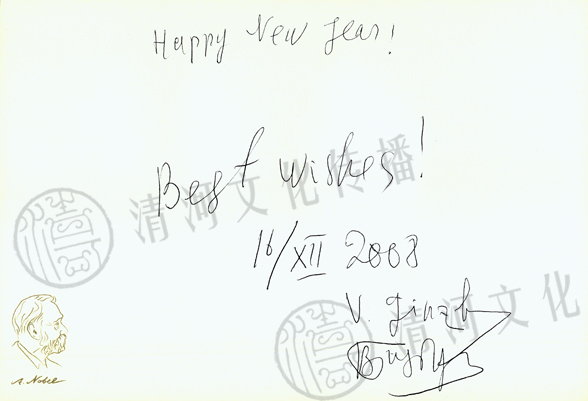 Happy New Year!
Best wishes!
清河文化传播
16/XII 2008
V. Ginzb
清河文化
A. Nobel